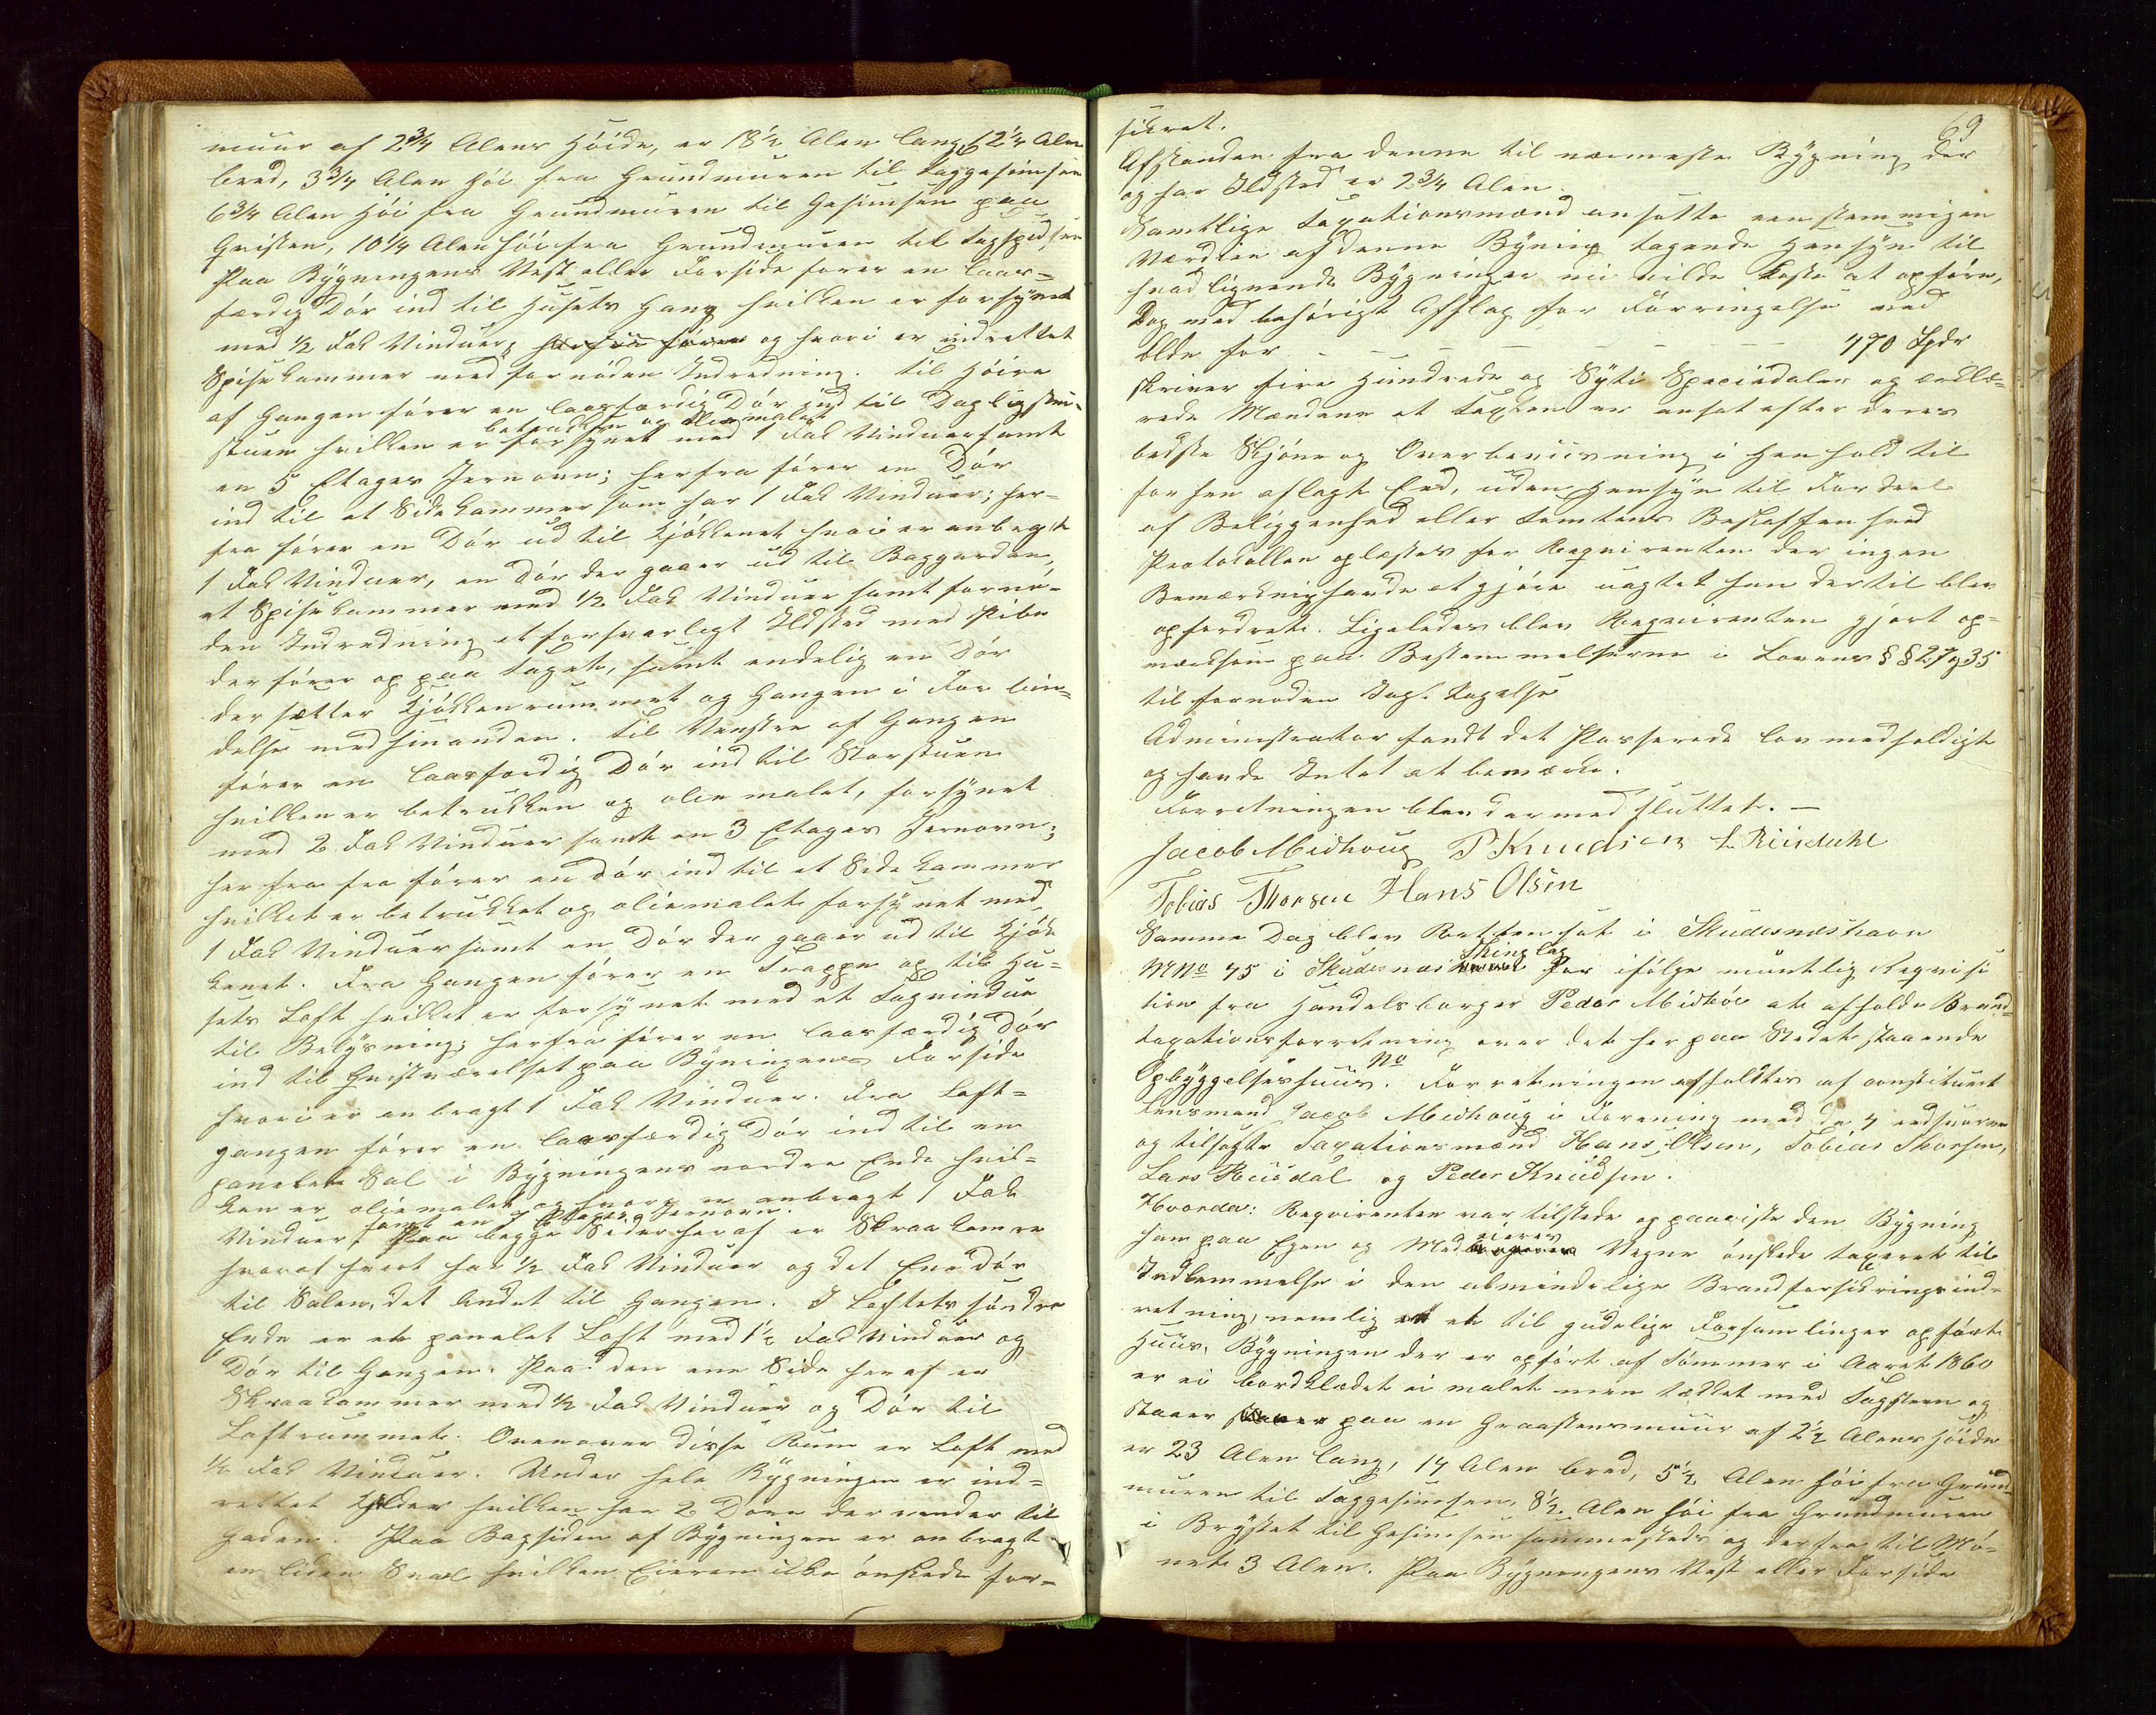 muur af 2 3/4 Alens Høide, er 18 1/2 Alen lang, 12 1/4 Alen
bred, 3 3/4 Alen høi fra Grundmuren til Taggesimsen
6 3/4 Alen høi fra Grundmuren til Gesimsen paa
Qvisten, 10 1/4 Alen høi fra Grundmuren til Tagspidsen
Paa Bygningens Vest eller Forside fører en laas-
færdig Dør ind til Husets Gang hvilken er forsynet
med 1/2 Fak Vinduer; og hvori er indrettet
Spisekammer med fornøden Indredning. Til Høire
af Gangen fører en laasfærdig Dør ind til Daglig-
betrukken og oliemalet
stuen hvilken er forsynet med 1 Fak Vinduer samt
en 5 Etages Jernovn; herfra fører en Dør
ind til et Sidekammer som har 1 Fak Vinduer; her-
fra fører en Dør ud til Kjøkkenet hvori er anbragt
1 Fak Vinduer, en Dør der gaaer ud til Baggaarden,
et Spisekammer med 1/2 Fak Vinduer samt fornø-
den Indredning et forsvarligt Ildsted med Pibe
der fører op paa Taget, samt endelig en Dør
der sætter Kjøkkenrummet og Gangen i Forbin-
delse med hinanden. Til Venstre af Gangen
fører en laasfærdig Dør ind til Storstuen
hvilken er betrukken og oliemalet, forsynet
med 2 Fak Vinduer samt en 3 Etages Jernovn;
her fra fra fører en Dør ind til et Sidekammer
hvilket er betrukket og oliemalet forsynet med
1 Fak Vinduer samt en Dør der gaaer ud til Kjøk
kenet. Fra Gangen fører en Trappe op til Hu-
sets Loft hvilket er forsynet med et Tagvindue
til Belysning; herfra fører en laasfærdig Dør
ind til Qvistværelset paa Bygningens Forside
hvori er anbragt 1 Fak Vinduer. Fra Loft-
gangen fører en laasfærdig Dør ind til en
panelet Sal i Bygningens nordre Ende hvil-
ken er oliemalet og hvori er anbragt 1 Fak
samt en Etages Jernovn.
Vinduer. Paa begge Sider heraf er Skraakamre
hvoraf hvert har 1/2 Fak Vinduer og det Ene Dør
til Salen, det Andet til Gangen. I Loftets søndre
Ende er et panelet Loft med 1 1/2 Fak Vinduer og
Dør til Gangen. Paa den ene Side heraf er
Skraakammer med 1/2 Fak Vinduer og Dør til
Loftrummet. Ovenover disse Rum er Loft med
1/2 Fak Vinduer. Under hele Bygningen er ind-
rettet Kjelder hvilken har 2 Døre der vender til
Gaden. Paa Bagsiden af Bygningen er anbragt
en liden Sval hvilken Eieren ikke ønskede for-
69
sikret.
Afstanden fra denne til nærmeste Bygning der
og har Ildsted er 2 3/4 Alen.
Samtlige Taxationsmænd ansatte eenstemmigen
Værdien af denne Bygning tagende Hensyn til
hvad lignende Bygninger nu vilde koste at opføre,
Dog med behørigt Afslag for Forringelse ved
Elde for - - - - - - 470 Spdr
skriver fire Hundrede og Sytti Speciedaler og erklæ-
rede Mændene at Taxten er ansat efter deres
bedste Skjøn og Overbeviisning i Henhold til
forhen aflagt Eed, uden Hensyn til Fordeel
af Beliggenhed eller Tomtens Beskaffenhed
Protokollen oplæstes for Reqvirenten der ingen
Bemærkning havde at gjøre uagtet han dertil blev
opfordret. Ligeledes blev Reqvirenten gjort op-
mærksom paa Bestemmelserne i Lovens §§ 27 og 35
til fornøden Iagttagelse
Administrator fandt det Passerede lovmedholdigt
og havde Intet at bemærke.
Forretningen blev dermed sluttet. —
Jacob Midhoug P Knudsen L. Riisdahl
Tobias Thorsen Hans Olsen
Samme Dag blev Retten sat i Skudesnæshavn
Thinglag
MNo 45 i Skudesnæs for ifølge mundtlig Reqvisi
tion fra Handelsborger Peder Midbøe at afholde Brand-
taxationsforretning over det her paa Stedet staaende
No
Opbyggelseshuus. Forretningen afholdtes af constitueret
Lensmand Jacob Midhoug i Forening med de 4 eedsvorne
og tilsatte Taxationsmænd Hans Olsen, Tobias Thorsen,
Lars Riisdal og Peder Knudsen.
Hvorda: Reqvirenten var tilstede og paaviste den Bygning
eieres
han paa Egen og Med Vegne ønskede taxeret til
Indlemmelse i den almindelige Brandforsikringsind-
retning, nemlig et til gudelige Forsamlinger opført
Huus. Bygningen der er opført af Tømmer i Aaret 1860
er ei bordklædet ei malet men tækket med Tagsteen og
staaer paa en Graasteensmuur af 2 1/2 Alens Høide
er 23 Alen lang, 14 Alen bred, 5 1/2 Alen høi fra Grund-
muren til Taggesimsen, 8 1/2 Alen høi fra Grundmuren
i Brystet til Gesimsen sammesteds og derfra til Mø-
net 3 Alen. Paa Bygningens Vest eller Forside